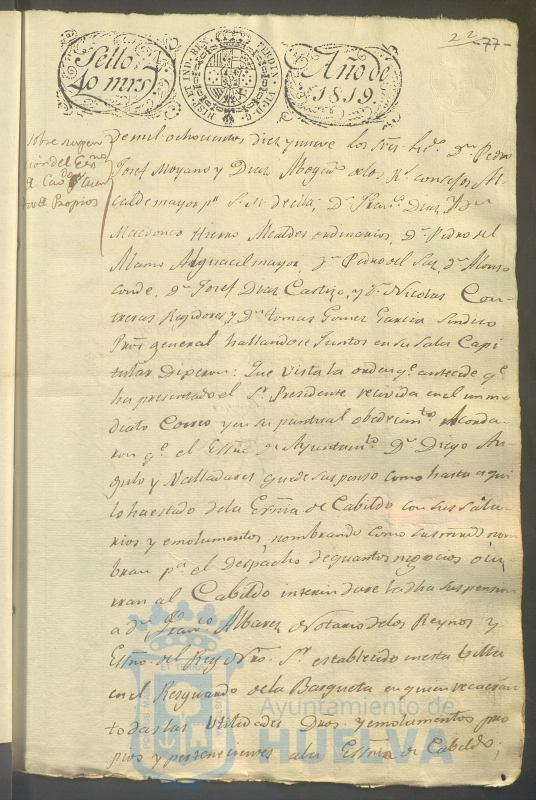 22 77
Sello 4º
40 mrs
HISP. ET IND. REX
FERDIN. VII. D. G.
Año de
1819.
sobre suspen
cion del Esno
de Cavdo y
Propios
de mil ochocientos diez y nueve los Sres. Ldo. Dn. Pedro
Josef Moyano y Diaz Abogdo de los Rs. Consejos Al
calde mayor pr. S. M. de ella, Dn. Franco Diaz, y Dn.
Hierro Alcaldes ordinarios, Dn. Pedro del
Alguacil mayor, Dn. Pedro del Saz, Dn. Alonso
Conde, Dn. Josef Diaz Castizo, y Dn. Nicolas Con
treras Regidores, y Dn. Tomas Gomez Garcia Sindico
Prór general hallandose juntos en su Sala Capi
tular Dixeron: Que vista la orden qe. antecede qe.
ha presentado el Sr. Presidente recivida en el inme
diato Correo y en su puntual obedecimto. Acorda
ron qe. el Essno de Ayuntamto. Dn. Diego An
gulo y Valladares quede suspenso como hasta aqui
lo ha estado de la Esnia de Cabildo con sus Sala
rios y emolumentos, nombrando como sus mrds. nom
bran pa. el despacho de quantos negocios ocu
rran al Cabildo interin dure la dha suspension
a Dn. Albarez Notario de los Reynos y
Essno. del Rey Ntro. Sr. establecido en esta Villa
en el Resguardo de la Barqueta en quien recaeran
todas las utilidades Dros. y emolumentos pro
pios y pertenecientes a la Essnia de Cabildo;
PORTUS MARIS
ET TERRÆ
Ayuntamiento de
HUELVA